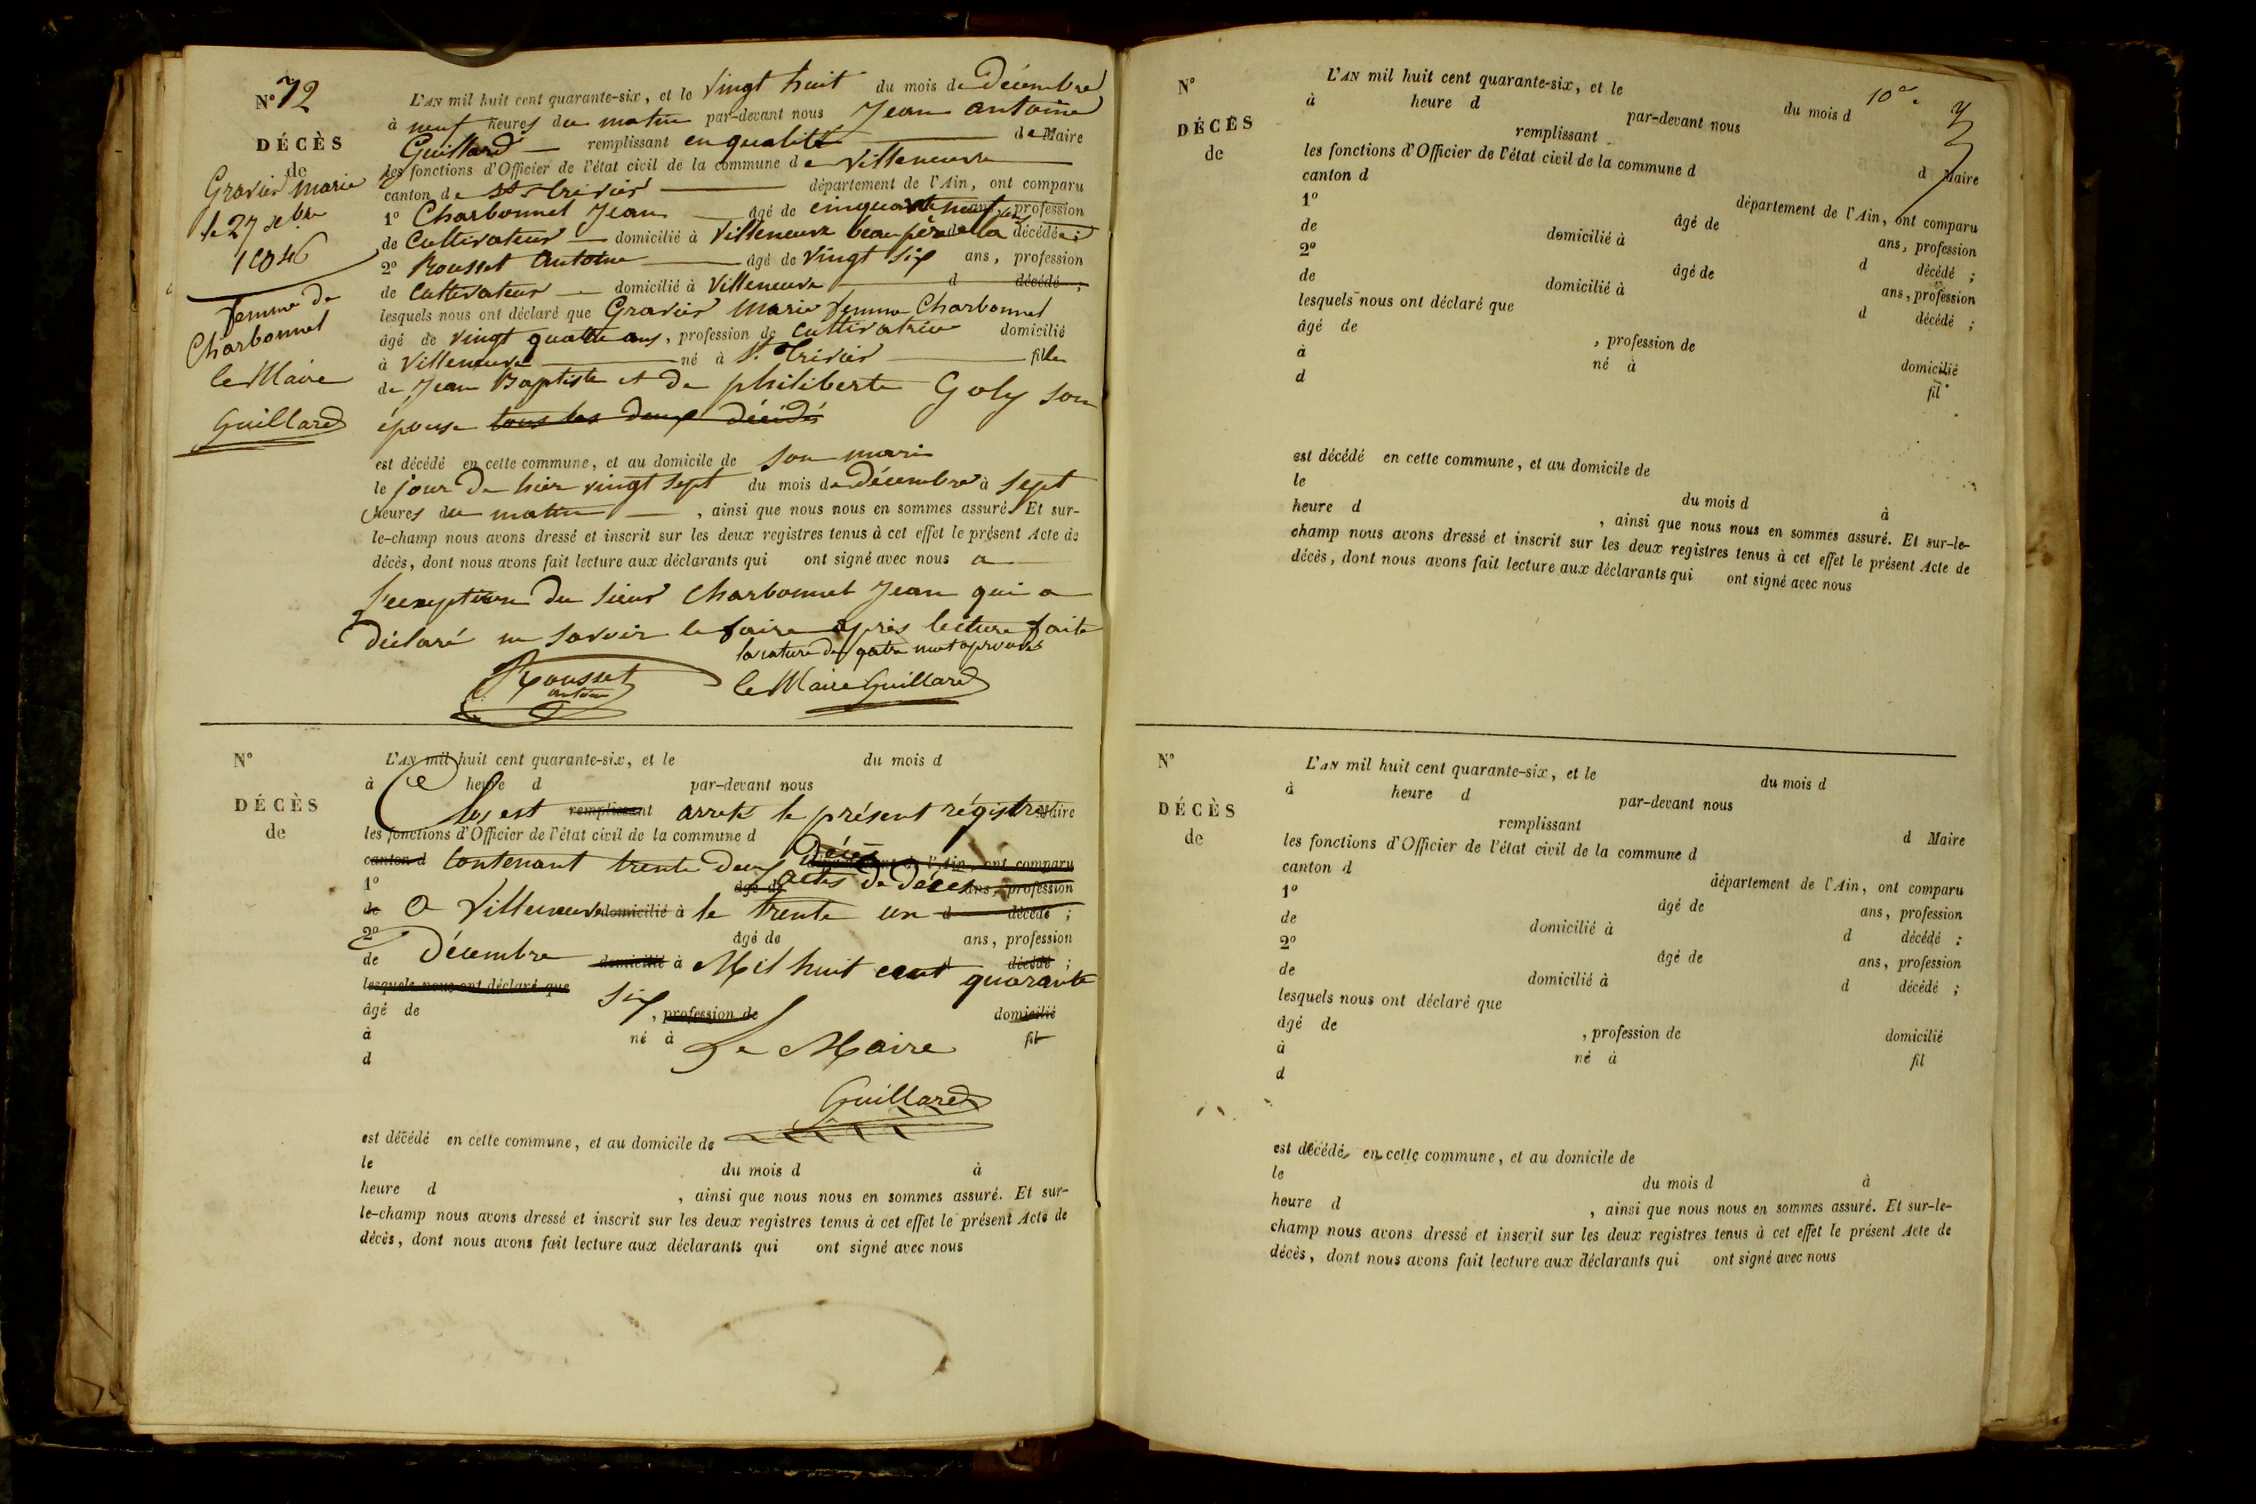 N° 72
DÉCÈS
de
Gravier Marie
le 27 Xbre
1846
femme de
Charbonnel
le Maire
Guillard
L'AN mil huit cent quarante-six, et le Vingt huit du mois de Décembre
à neuf heures du matin par-devant nous Jean Antoine
Guillard remplissant en qualité de Maire
les fonctions d'Officier de l'état civil de la commune de Villeneuve
canton de St Trivier département de l'Ain, ont comparu
1° Charbonnel Jean âgé de cinquante neuf ans, profession
de Cultivateur domicilié à Villeneuve beau père de la décédée ;
2° Rousset Antoine âgé de Vingt Six ans, profession
de Cultivateur domicilié à Villeneuve d décédé ;
lesquels nous ont déclaré que Gravier Marie femme Charbonnel
âgé de Vingt quatre ans, profession de Cultivatrice domicilié
à Villeneuve né à St Trivier fille
de Jean Baptiste et de philiberte Goly son
épouse tous les deux décédés
est décédé en cette commune, et au domicile de son mari
le jour de hier vingt sept du mois de décembre à sept
heures du matin , ainsi que nous nous en sommes assuré. Et sur-
le-champ nous avons dressé et inscrit sur les deux registres tenus à cet effet le présent Acte de
décès, dont nous avons fait lecture aux déclarants qui ont signé avec nous a
l'exception du Sieur Charbonnel Jean qui a
déclaré ne savoir le faire après lecture faite
la rature des quatre mots aprouvés
Rousset
antoine
le Maire Guillard
N°
DÉCÈS
de
L'AN mil huit cent quarante-six, et le du mois d
à heure d par-devant nous
Ce
jour est remplissant arreté le présent régistre Maire
les fonctions d'Officier de l'état civil de la commune d
décès
canton d Contenant trente deux département de l'Ain, ont comparu
1° âgé de actes de décès ans, profession
de A Villeneuve domicilié à le trente un d décédé ;
2° âgé de ans, profession
de décembre domicilié à Mil huit cent d décédé ;
lesquels nous ont déclaré que quarante
âgé de Six , profession de domicilié
à né à Le Maire fil
d
Guillard
est décédé en cette commune, et au domicile de
le du mois d à
heure d , ainsi que nous nous en sommes assuré. Et sur-
le-champ nous avons dressé et inscrit sur les deux registres tenus à cet effet le présent Acte de
décès, dont nous avons fait lecture aux déclarants qui ont signé avec nous
N°
DÉCÈS
de
L'AN mil huit cent quarante-six, et le du mois d 10e
à heure d par-devant nous
remplissant d Maire
les fonctions d'Officier de l'état civil de la commune d
canton d département de l'Ain, ont comparu
1° âgé de ans, profession
de domicilié à d décédé ;
2° âgé de ans, profession
de domicilié à d décédé ;
lesquels nous ont déclaré que
âgé de , profession de domicilié
à né à fil
d
est décédé en cette commune, et au domicile de
le du mois d à
heure d , ainsi que nous nous en sommes assuré. Et sur-le-
champ nous avons dressé et inscrit sur les deux registres tenus à cet effet le présent Acte de
décès, dont nous avons fait lecture aux déclarants qui ont signé avec nous
N°
DÉCÈS
de
L'AN mil huit cent quarante-six, et le du mois d
à heure d par-devant nous
remplissant d Maire
les fonctions d'Officier de l'état civil de la commune d
canton d département de l'Ain, ont comparu
1° âgé de ans, profession
de domicilié à d décédé ;
2° âgé de ans, profession
de domicilié à d décédé ;
lesquels nous ont déclaré que
âgé de , profession de domicilié
à né à fil
d
est décédé en cette commune, et au domicile de
le du mois d à
heure d , ainsi que nous nous en sommes assuré. Et sur-le-
champ nous avons dressé et inscrit sur les deux registres tenus à cet effet le présent Acte de
décès, dont nous avons fait lecture aux déclarants qui ont signé avec nous